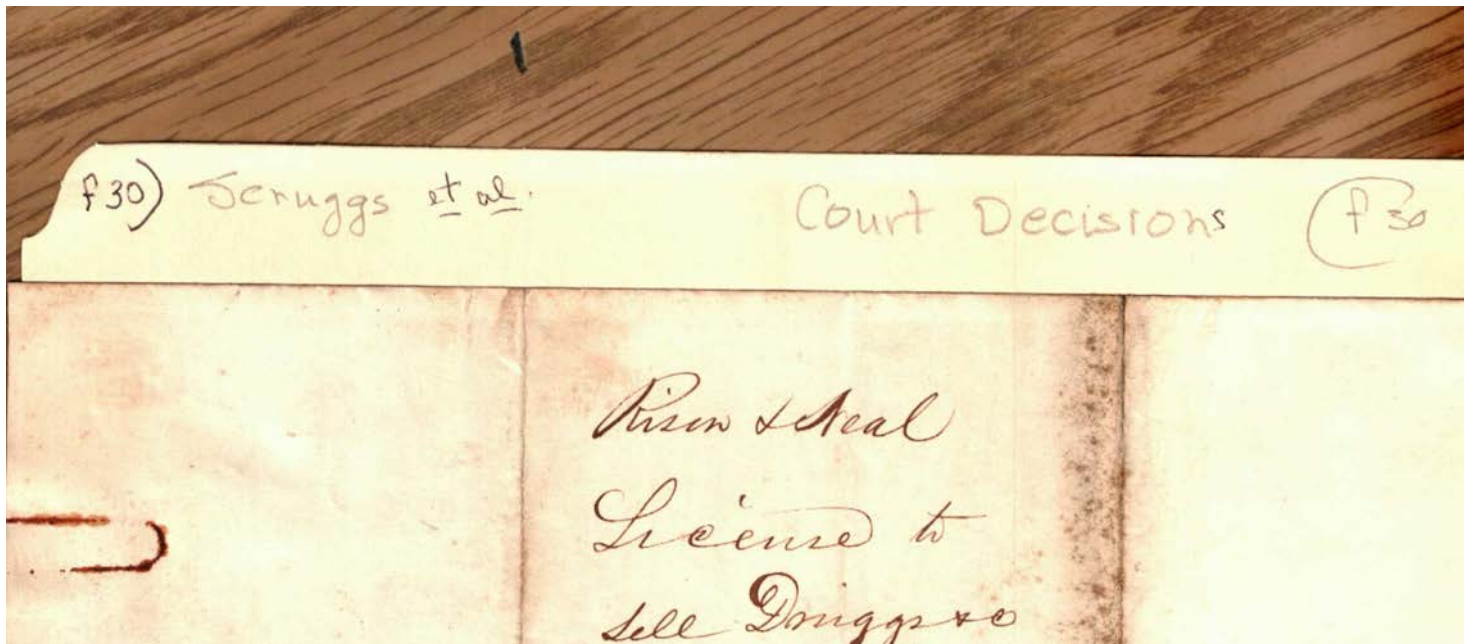 f30) Scruggs et al. Court Decisions (f 30
Rison & Neal
License to
sell Druggs &c